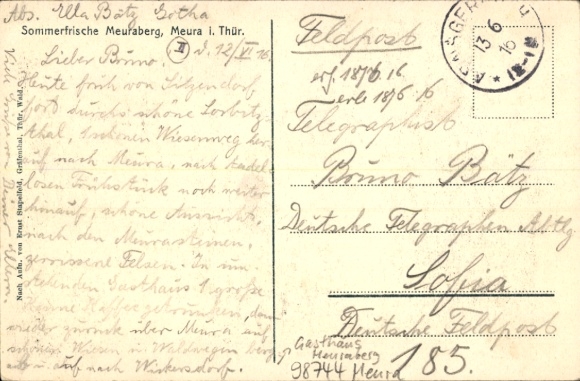 Abs. Ella Bätz Gotha
Sommerfrische Meuraberg, Meura i. Thür.
II d. 12/VI 16.
Lieber Bruno.
Heute früh von Sitzendorf
fort durchs schöne Sorbitz-
thal, schönen Wiesenweg her-
auf nach Meura, nach tadel-
losen Frühstück noch weiter
hinauf, schöne Aussicht,
nach den Meurasteinen,
zerrissene Felsen. In um-
stehenden Gasthaus 1 große
Kanne Kaffee getrunken, dann
wieder zurück über Meura auf
schönen Wiesen u. Waldwegen berg
auf nach Wickersdorf.
Viele Grüße von Deiner
Nach Aufn. von Ernst Stapelfeld, Gräfenthal, Thür. Wald.
Feldpost
13 6 16
erh. 18/6 16
Telegraphist
Bruno Bätz
Deutsche Telegraphen Abtlg
Sofia
Deutsche Feldpost
185.
Gasthaus
Meuraberg
98744 Meura